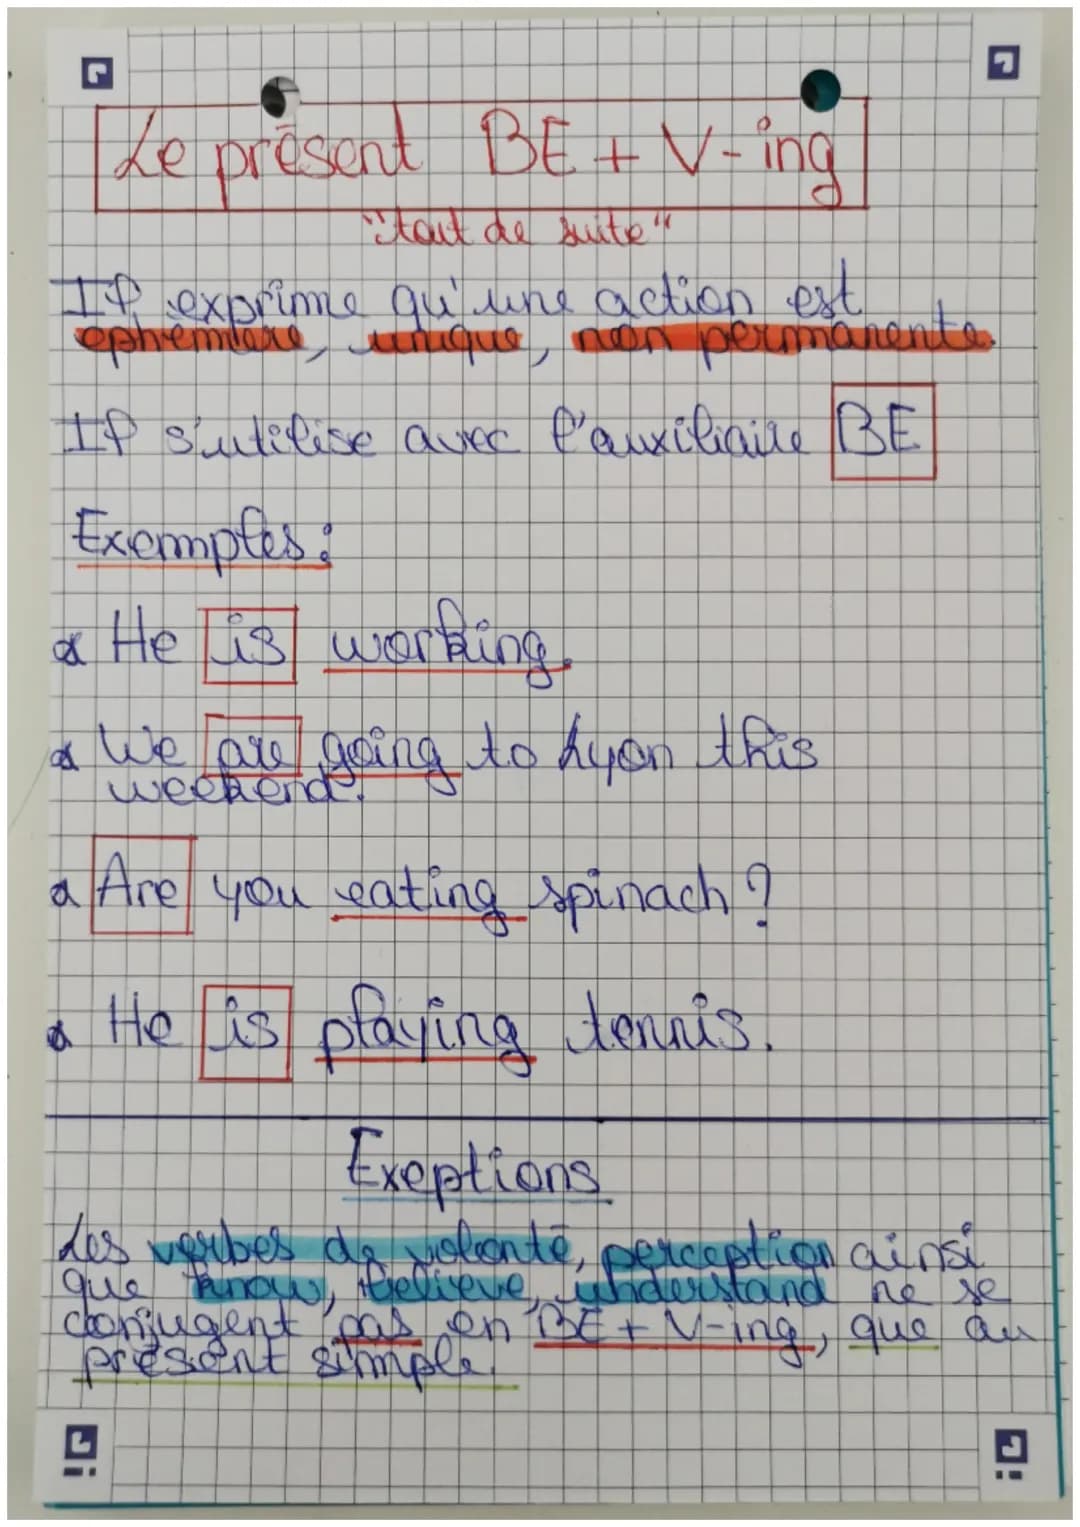 Le présent BE + V-ing
"tout de suite"
Il exprime qu'une action est
éphémère, unique, non permanente.
Il s'utilise avec l'auxiliaire BE
Exemples :
He is working.
We are going to Lyon this
weekend.
Are you eating spinach ?
He is playing tennis.
Exeptions
Les verbes de volonté, perception ainsi
que know, believe, understand ne se
conjugent pas en BE + V-ing, que au
présent simple.